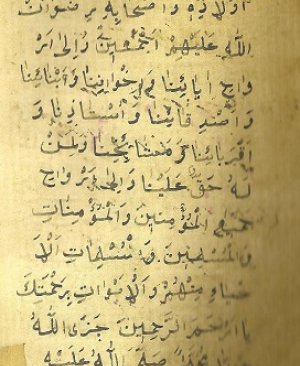 اولاده واصحابه رضوان
الله عليهم اجمعين والى ار
واح ابائنا واخواننا وابنائنا
واصدقائنا واستادنا و
اقربائنا ومشائخنا ولمن
له حق علينا والى ارواح
جميع المؤمنين والمؤمنات
والمسلمين ومسلمات الا
حياء منهم والاموات برحمتك
يا ارحم الرحمين جزى الله
صلى الله عليه